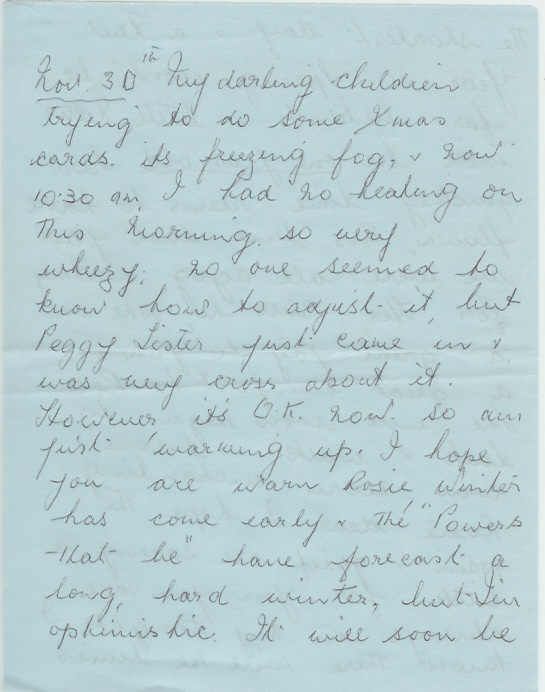 Nov. 30th My darling children
trying to do some Xmas
cards. its freezing fog, & now
10.30 am, I had no heating on
this morning, so very
wheezy; no one seemed to
know how to adjust it, but
Peggy Lister just came in &
was very cross about it.
However it's O.K. now. so am
just warming up. I hope
you are warm Rosie, winter
has come early & the "Powers
-that-be" have forecast a
long, hard winter, but I'm
optimistic. It will soon be